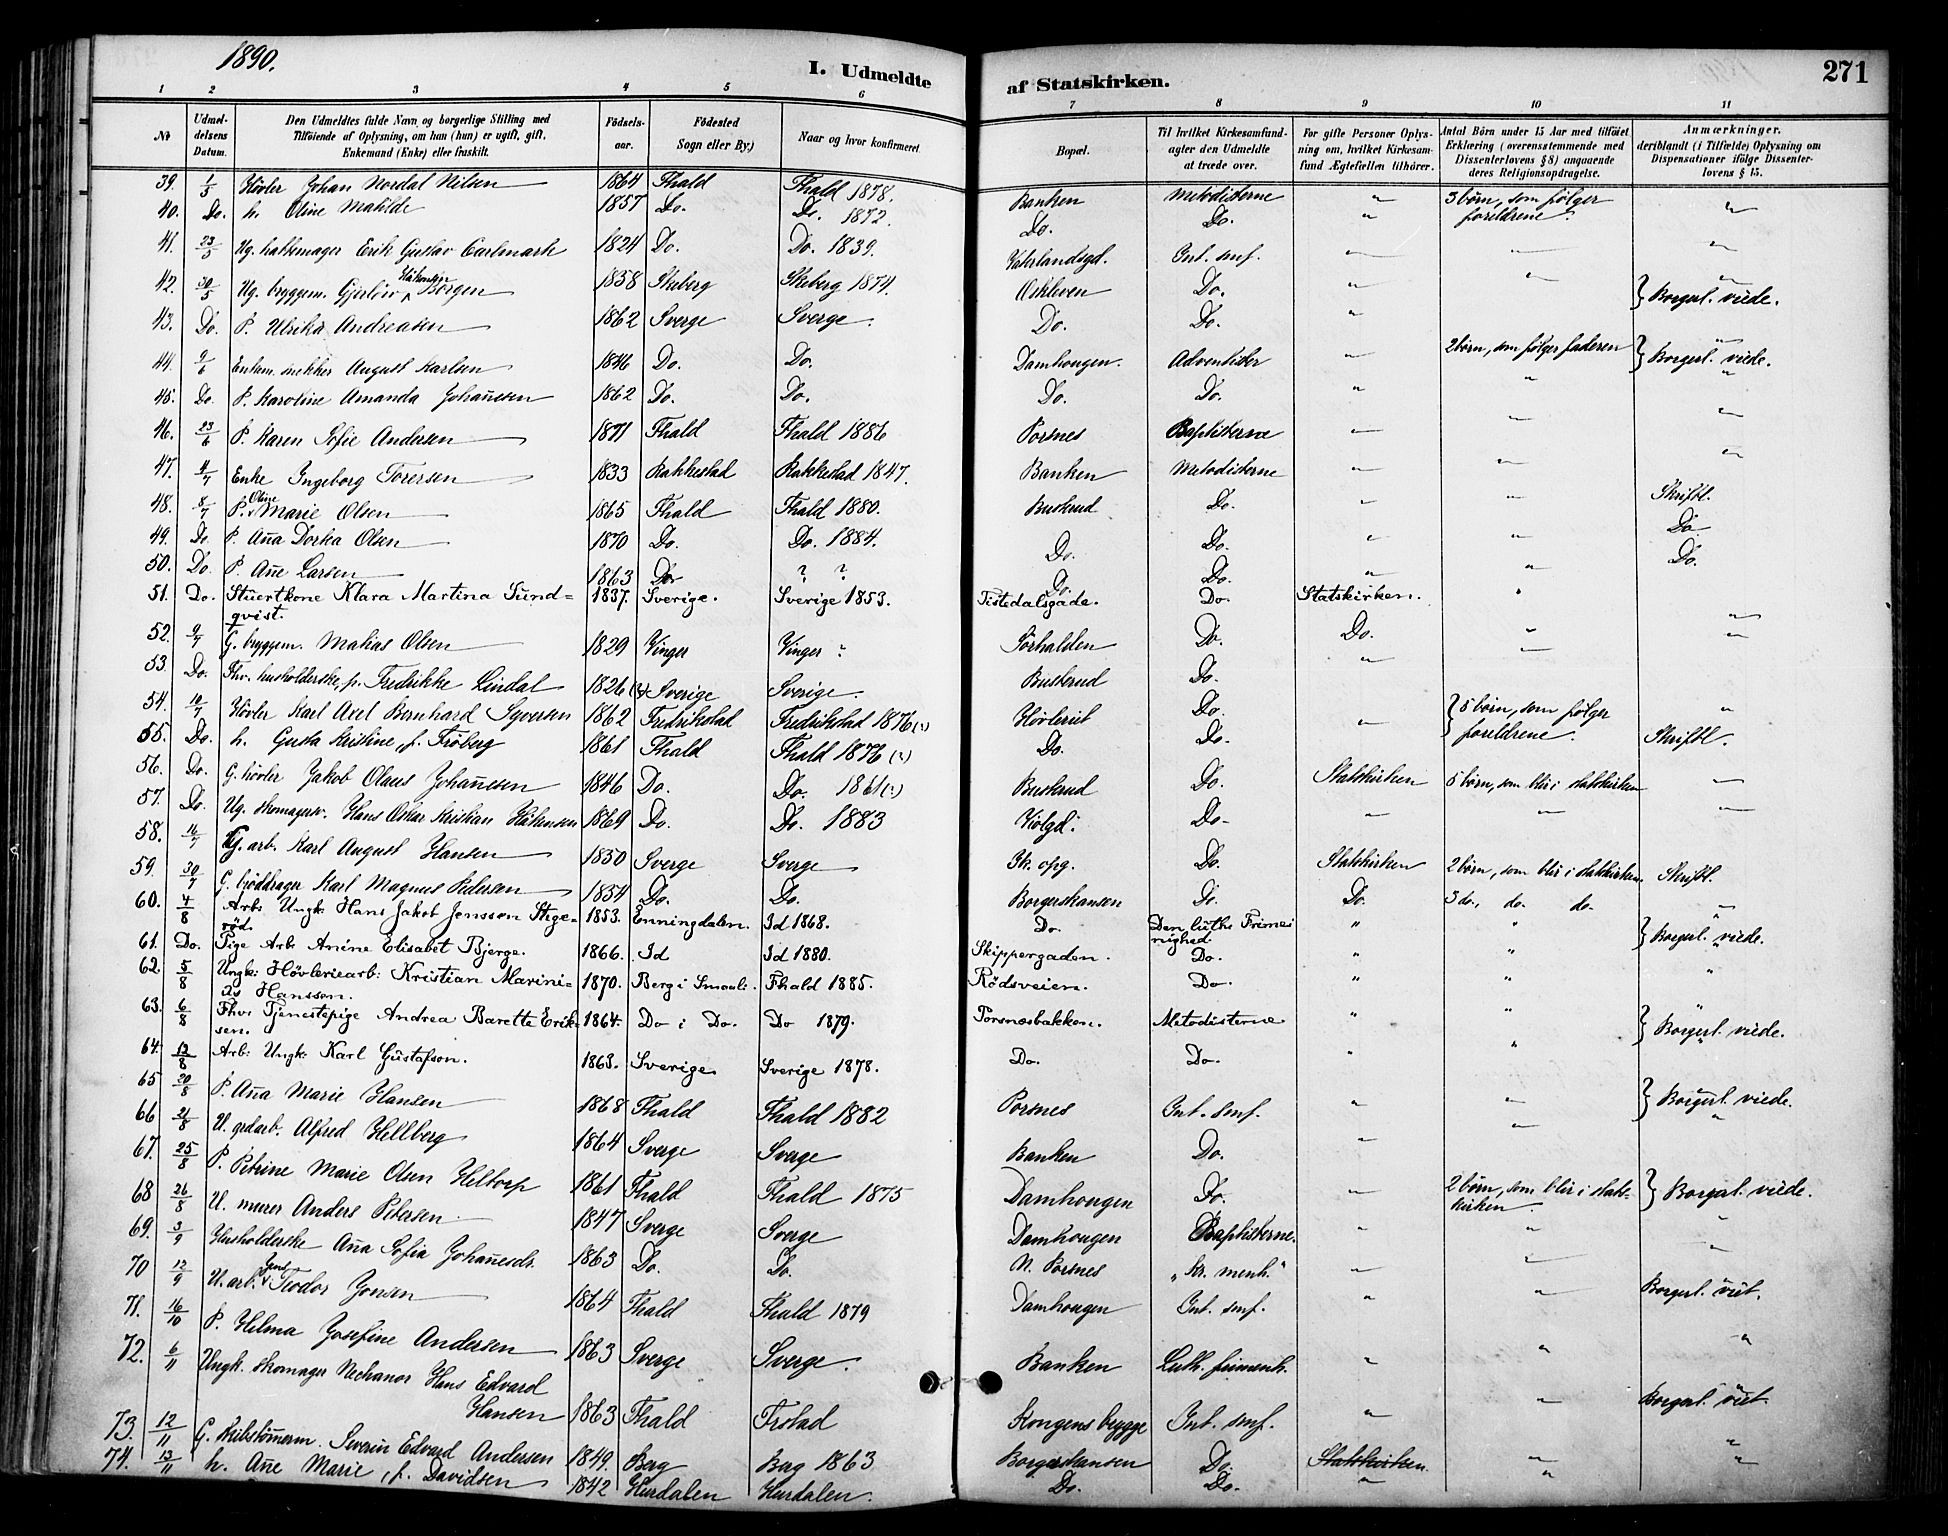 1890.
I. Udmeldte af Statskirken.
271
1 2 3 4 5 6 7 8 9 10 11
No
Udmeldelsens Datum.
Den Udmeldtes fulde Navn og borgerlige Stilling med Tilföiende af Oplysning, om han (hun) er ugift, gift, Enkemand (Enke) eller fraskilt.
Födselsaar.
Födested Sogn eller By.)
Naar og hvor konfirmeret.
Bopæl.
Til hvilket Kirkesamfund agter den Udmeldte at træde over.
For gifte Personer Oplysning om, hvilket Kirkesamfund Ægtefællen tilhörer.
Antal Börn under 15 Aar med tilföiet Erklæring (overensstemmende med Dissenterlovens § 8) angaaende deres Religionsopdragelse.
Anmærkninger. deriblandt (i Tilfælde) Oplysning om Dispensationer ifölge Dissenterlovens § 15.
39. 1/5 Hövler Johan Nordal Nilsen 1864 Fhald Fhald 1878. Banken Metodisterne " 3 börn, som fölger "
40. Do. h. Oline Matilde 1857 Do. Do. 1872. Do. Do. " foreldrene
41. 23/5 Ug. hattemager Erik Gustav Carlmark 1824 Do. Do. 1839. Vaterlandsgd. Int. smf. " " "
42. 30/5 Ug. bryggem. Gjerlöw Håkensen Börgen 1858 Skeberg Skeberg 1874. Oskleven Do. " " } Borgerl. viede.
43. Do. P. Ulrika Andreasen 1862 Sverge Sverge. Do. Do. "
44. 9/6 Enkem. snekker August Karlsen 1846 Do. Do. Damhougen. Adventister " 2 börn, som fölger faderen } Borgerl. viede.
45. Do. P. Karoline Amanda Johañesen 1862 Do. Do. Do. Do. " " "
46. 23/6 P. Karen Sofie Andersen 1871 Fhald Fhald 1886 Porsnes Baptisterne " " "
47. 4/7 Enke Ingeborg Torersen 1833 Rakkestad Rakkestad 1847. Banken Metodisterne " " "
48. 8/7 P. Oline Marie Olsen 1865 Fhald Fhald 1880. Buskrud Do. " " Skriftl.
49. Do P. Aña Dorka Olsen 1870 Do. Do. 1884. Do. Do. " " Do
50. Do. P. Añe Larsen 1863 Do. ? ? Do. Do. " " Do.
51. Do. Stuertkone Klara Martina Sund= 1837. Sverige. Sverige 1853. Tistedalsgade. Do. Statskirken. "
qvist.
52. 9/7 G. bryggem. Matias Olsen 1829 Vinger Vinger ? Sörhalden Do. Do. " "
53. Do. Fhv. husholderske, p. Fredrikke Lindal 1826 (?) Sverige Sverige. Buskrud Do. " " "
54. 10/7 Hövler Karl Axel Bernhard Syversen 1862 Fredrikstad Fredrikstad 1876 (?) Hövleriet Do. } 5 börn, som fölger "
55. Do. h. Gusta Kristine, f. Fröberg 1861 Fhald Fhald 1876 (?) Do. Do. " } foreldrene. Skriftl.
56. Do. G. hövler Jakob Olaus Johañesen 1846 Do. Do. 1861 (?) Buskrud Do. Statskirken 5 börn, som blir i statskirken "
57. Do. Ug. skomagersv. Hans Oskar Kristian Håkensen 1869 Do. Do. 1883 Violgd. Do. " " "
58. 16/7 G. arb. Karl August Hansen 1850 Sverge Sverge Sk. opg. Do. Statskirken 2 börn, som blir i statskirken. Skriftl.
59. 30/7 G. bjöddrager Karl Magnus Pedersen 1854 Do. Do. Borgerskansen Do. Do. 3 do., do. do. "
60. 4/8 Arb. Ungk. Hans Jakob Jenssen Stige= 1853. Enningdalen. Id 1868. Do. Den luthe Frime= " " } Borgerl. viede.
röd. nighed
61. Do. Pige Arb. Anine Elisabet Bjerge. 1866. Id Id 1880. Skippergaden. Do. " "
62. 5/8 Ungk: Hövleriearb: Kristian Marini= 1870. Berg i Smaal. Fhald 1885. Rödsveien. Do. " " "
us Hanssen.
63. 6/8 Fhv. Tjenestepige Andrea Barette Erik= 1864. Do i Do. Do 1879. Porsnesbakken. Metodisterne " " } Borgerl. viede.
sen.
64. 13/8 Arb: Ungk: Karl Gustafson. 1863. Sverige Sverige 1878. Do. Do. " "
65 20/8 P. Aña Marie Hansen 1868 Fhald Fhald 1882 Porsnes Int. smf. " " } Borgerl. viede.
66 21/8 U. grdarb. Alfred Hellberg 1864 Sverge Sverge Banken Do. " " "
67. 25/8 P. Petrine Marie Olsen Heltorp 1861 Fhald Fhald 1875 Damhougen Do. " 2 börn, som blir i stats- } Borgerl. viede.
kirken.
68 26/8 U. murer Anders Petersen 1847 Sverge Sverge Damhougen Baptisterne. " " "
69. 3/9 Husholderske Aña Sofia Johañesdr. 1863 Do. Do. N. Porsnes "Kr. menh." " " "
70 12/9 U. arb. Jens Teodor Jonsen 1864 Fhald Fhald 1879 Damhougen Int. smf. " " Borgerl. viet.
71. 16/10 P. Hilma Josefine Andersen 1863 Sverge Sverge. Banken Luth. frimenh. " " "
72. 6/11 Ungk. skomager Nechanor Hans Edvard
Hansen 1863 Fhald Frstad Kongens brygge Int. smf. " " Borgerl. viet
73. 12/11 G. skibstömerm. Severin Edvard Andersen 1849. Berg Berg 1863 Borgerskansen Do. Statskirken. " "
74. 13/11 h. Añe Marie, f. Davidsen 1842 Hurdalen Hurdalen. Do. Do. " " "